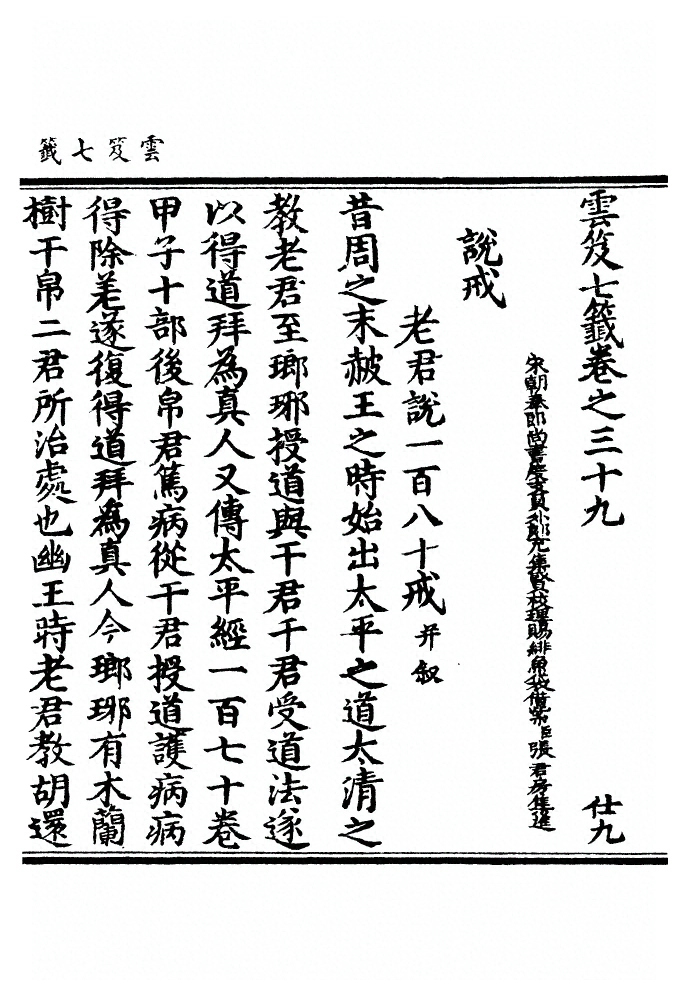 雲笈七籤
雲笈七籤卷之三十九　仕九
宋朝奉郎尚書度支員外郎充集賢校理賜緋魚袋借紫臣張君房集進
說戒
老君說一百八十戒并叙
昔周之末赧王之時始出太平之道太清之
教老君至瑯琊授道與干君干君受道法遂
以得道拜為真人又傳太平經一百七十卷
甲子十部後帛君篤病從干君授道護病病
得除差遂復得道拜為真人今瑯琊有木蘭
樹干帛二君所治處也幽王時老君教胡還